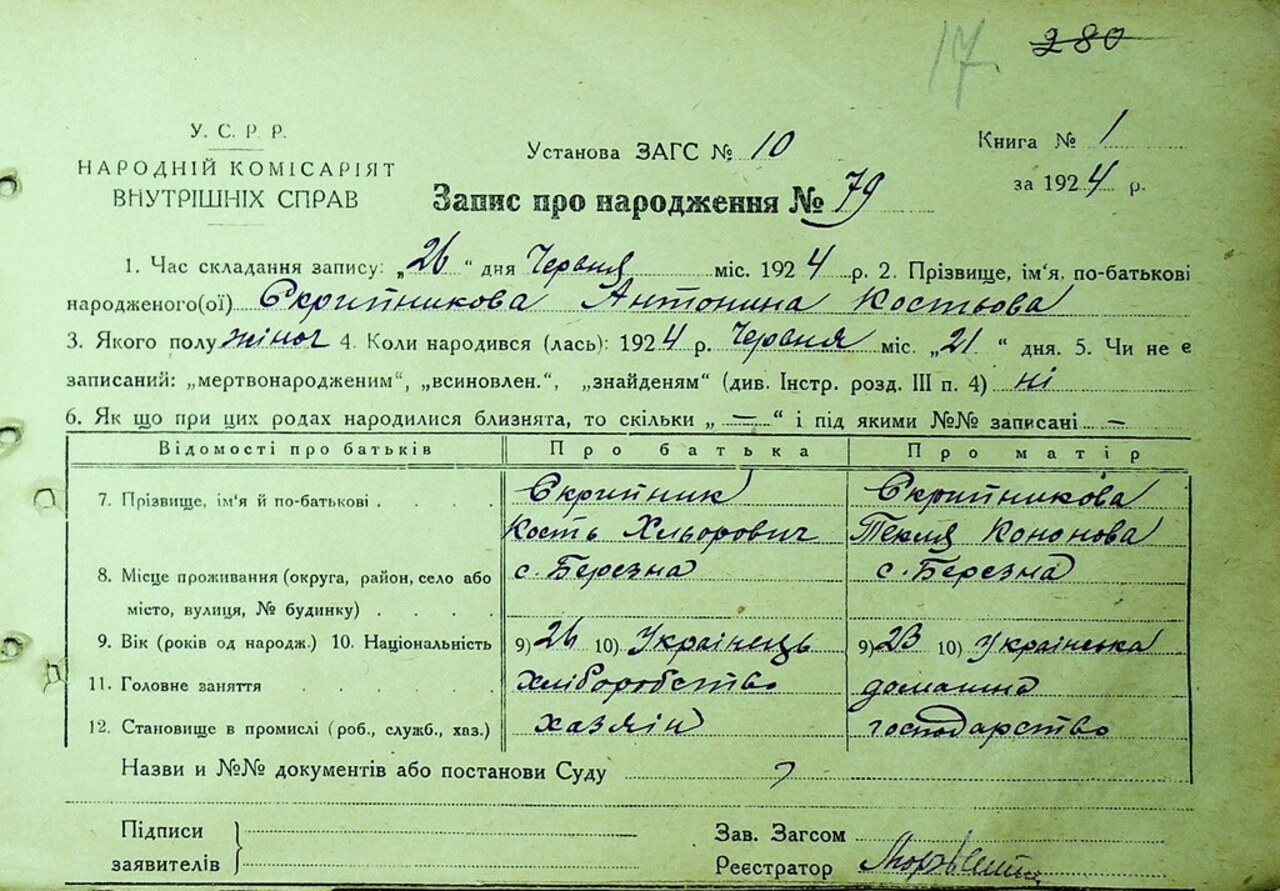 17.
280
У. С. Р. Р.
НАРОДНІЙ КОМІСАРІЯТ
ВНУТРІШНІХ СПРАВ
Установа ЗАГС № 10
Книга № 1
за 1924 р.
Запис про народження № 79
1. Час складання запису: „26“ дня Червня міс. 1924 р. 2. Прізвище, ім'я, по-батькові
народженого(ої) Скрипникова Антонина Костьова
3. Якого полу жіноч 4. Коли народився (лась): 1924 р. Червня міс. „21“ дня. 5. Чи не є
записаний: „мертвонародженим“, „всиновлен.“, „знайденям“ (див. Інстр. розд. III п. 4) ні
6. Як що при цих родах народилися близнята, то скільки „—“ і під якими №№ записані —
Відомості про батьків Про батька Про матір
7. Прізвище, ім'я й по-батькові . . . . Скрипник Скрипникова
Кость Хльорович Текля Кононова
8. Місце проживання (округа, район, село або с. Березна с. Березна
місто, вулиця, № будинку) . . . .
9. Вік (років од народж.) 10. Національність 9) 26 10) Українець 9) 23 10) Українська
11. Головне заняття . . . . . Хліборобство домашнє
12. Становище в промислі (роб., служб., хаз.) хазяін господарство
Назви и №№ документів або постанови Суду
Підписи
заявителів
Зав. Загсом
Реєстратор